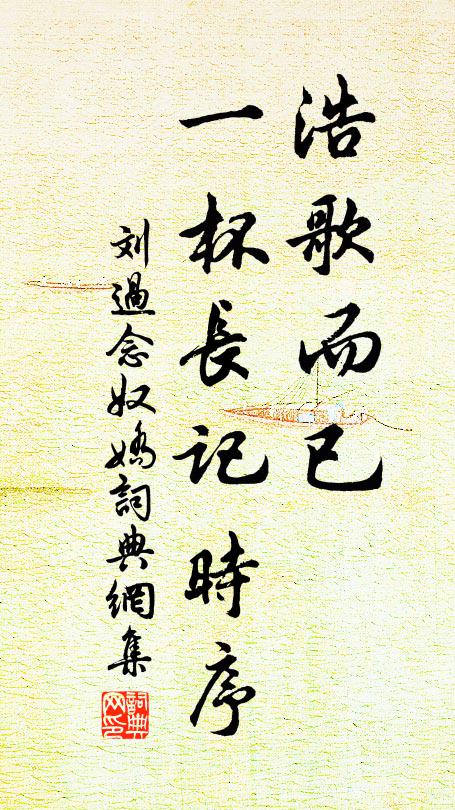 浩歌而已
一杯長記時序
刘過念奴嬌詞典網集
詞典网印